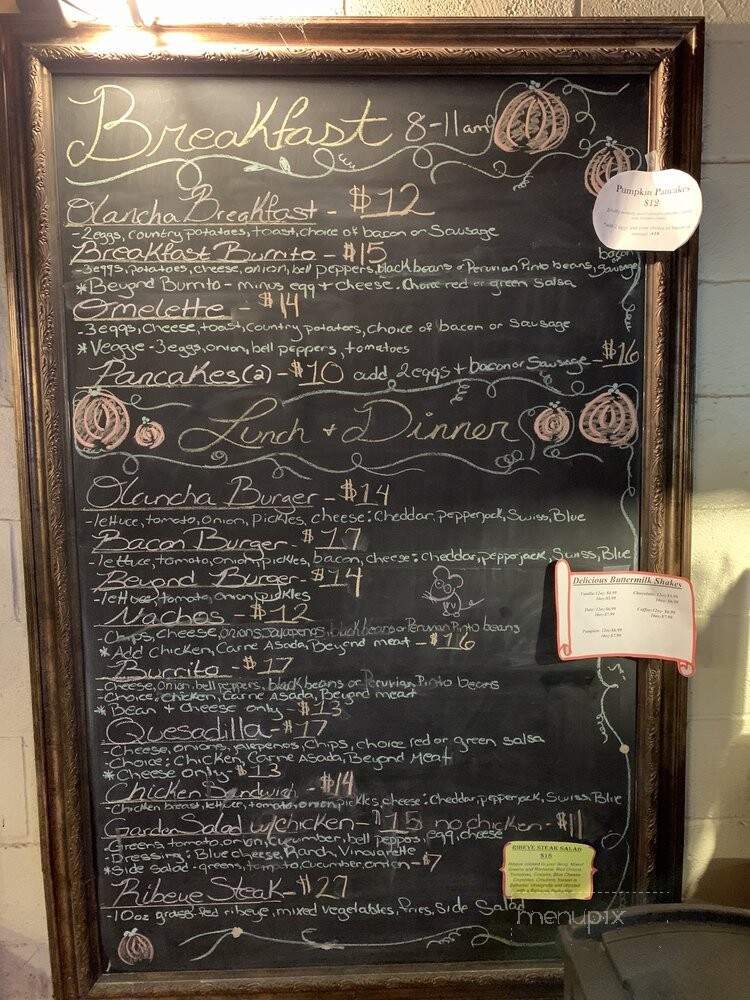 Breakfast 8-11am
Olancha Breakfast - $12
-2eggs, country potatoes, toast, choice of bacon or Sausage
Breakfast Burrito - $15
-3eggs, potatoes, cheese, onion, bell peppers, black beans or Peruvian Pinto beans, bacon, sausage
*Beyond Burrito - minus egg + cheese. Choice red or green Salsa
Omelette - $14
-3eggs, cheese, toast, country potatoes, choice of bacon or Sausage
*Veggie - 3eggs, onion, bell peppers, tomatoes
Pancakes (2) - $10 add 2eggs + bacon or Sausage - $16
Lunch + Dinner
Olancha Burger - $14
-lettuce, tomato, onion, pickles, cheese: Cheddar, pepperjack, Swiss, Blue
Bacon Burger - $17
-lettuce, tomato, onion, pickles, bacon, cheese: Cheddar, pepperjack, Swiss, Blue
Beyond Burger - $14
-lettuce, tomato, onion, pickles
Nachos - $12
-Chips, cheese, onions, jalapenos, black beans or Peruvian Pinto beans
*Add Chicken, Carne Asada, Beyond meat - $16
Burrito - $17
-Cheese, onion, bell peppers, black beans or Peruvian Pinto beans
-Choice: Chicken, Carne Asada, Beyond meat
*Bean + Cheese only - $13
Quesadilla - $17
-Cheese, onions, jalapenos, Chips, choice red or green salsa
-Choice: Chicken, Carne Asada, Beyond Meat
*Cheese only $13
Chicken Sandwich - $14
-Chicken breast, lettuce, tomato, onion, pickles, cheese: Cheddar, pepperjack, Swiss, Blue
Garden Salad w/chicken - $15 no chicken - $11
-Greens, tomato, onion, cucumber, bell peppers, egg, cheese
-Dressing: Blue cheese, Ranch, Vinaigrette
*Side salad - greens, tomato, cucumber, onion - $7
Ribeye Steak - $27
-10oz grass-fed ribeye, mixed vegetables, fries, Side Salad
Pumpkin Pancakes
$12
Delicious Buttermilk Shakes
RIBEYE STEAK SALAD
menupix